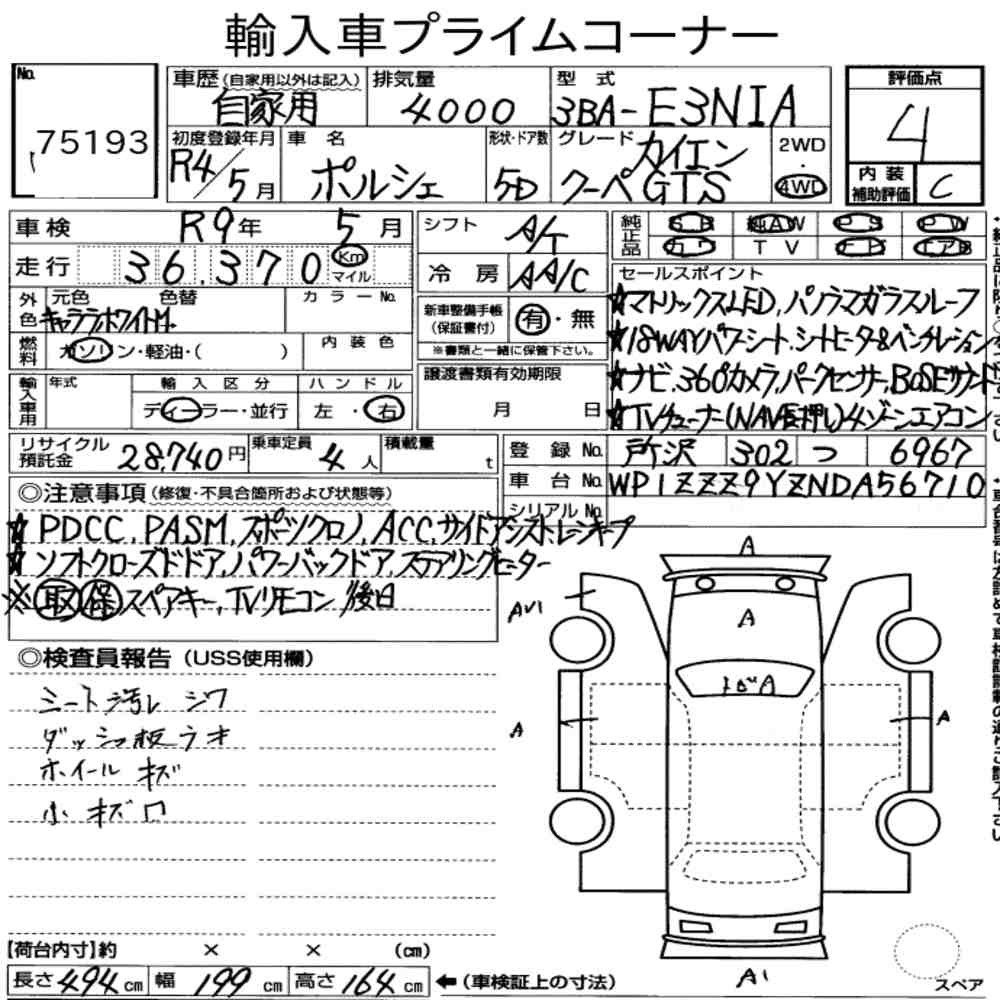 輸入車プライムコーナー
No. 75193
車歴 (自家用以外は記入) 自家用
排気量 4000
型式 3BA-E3N1A
評価点 4
内装補助評価 C
初度登録年月 R4/5月
車名 ポルシェ
形状・ドア数 5D
グレード カイエンクーペGTS
2WD・4WD
車検 R9年 5月
走行 36.370 Km マイル
シフト A/T
冷房 AA/C
純正品 SR 純AW PS PW
カワ TV ナビ エアB
外色 元色 色替 キャララホワイトM.
カラーNo.
燃料 ガソリン・軽油・( )
内装色
新車整備手帳(保証書付) 有・無
※書類と一緒に保管下さい。
セールスポイント
☆マトリックスLED,パノラマガラスルーフ
☆18WAYパワーシート.シートヒータ&ベンチレーション
☆ナビ.360°カメラ,パークセンサー,BOSEサウンド
☆TVチューナー(NAV長押し)4ゾーンエアコン
輸入車用 年式
輸入区分 ディーラー・並行
ハンドル 左・右
譲渡書類有効期限 月 日
リサイクル預託金 28,740円
乗車定員 4人
積載量 t
登録No. 所沢 302 つ 6967
車台No. WP1ZZZ9YZNDA56710
シリアルNo.
◎注意事項 (修復・不具合箇所および状態等)
☆ PDCC,PASM,スポーツクロノ,ACC,サイドアシストレーンキープ
☆ ソフトクローズドドア,パワーバックドア,ステアリングヒーター
※ 取 保 スペアキー,TVリモコン 後日
◎検査員報告 (USS使用欄)
シート汚レ シワ
ダッシュ板ラキ
ホイール キズ
小キズ
A
AW1
A
トビA
A
A
A1
スペア
【荷台内寸】約 × × (cm)
長さ 494 cm 幅 199 cm 高さ 164 cm ←(車検証上の寸法)